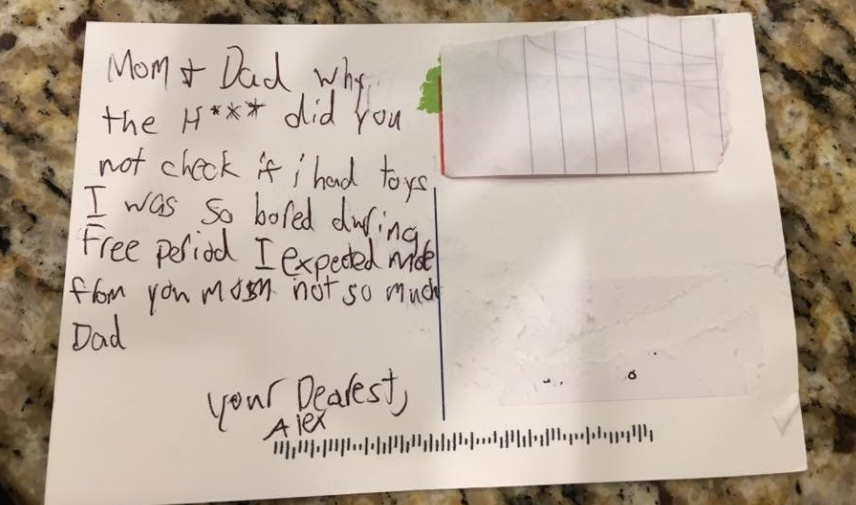 Mom + Dad why
the H*** did you
not check if i had toys
I was so bored during
Free period I expected more
from you mom not so much
Dad
your Dearest,
Alex